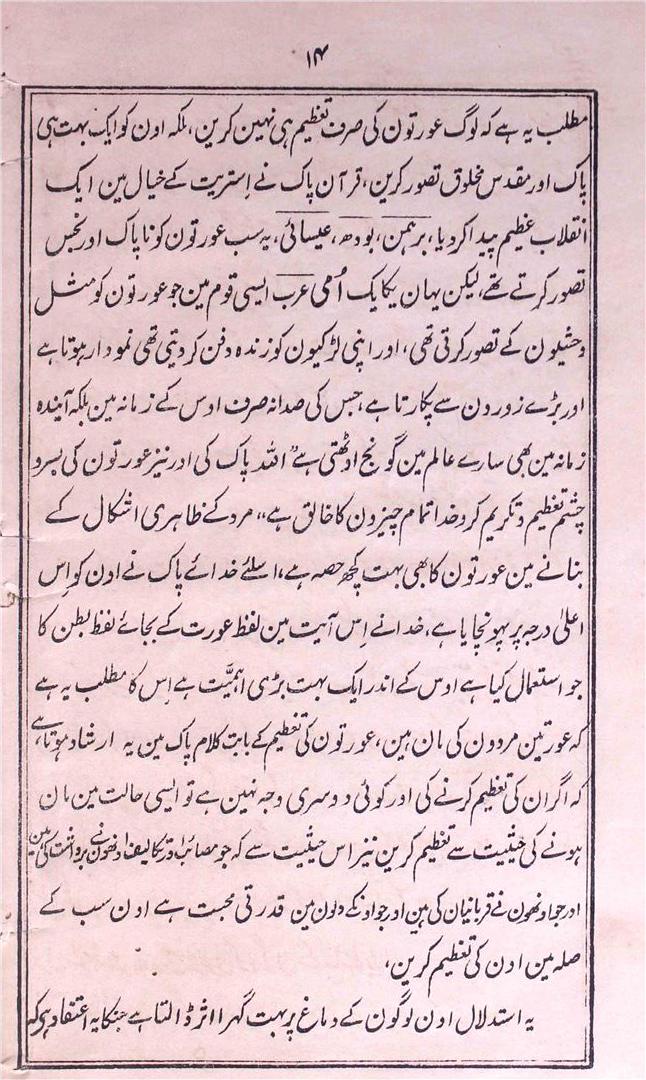 ۱۴
مطلب یہ ہے کہ لوگ عورتون کی صرف تعظیم ہی نہین کرین، بلکہ اون کو ایک بہت ہی
پاک اور مقدس مخلوق تصور کرین، قرآن پاک نے اِستریت کے خیال مین ایک
انقلاب عظیم پیدا کر دیا، برہمن، بودھ، عیسائی، یہ سب عورتون کو ناپاک اور نجس
تصور کرتے تھے، لیکن یہان یکایک اُمی عرب ایسی قوم مین جو عورتون کو مثل
وحشیون کے تصور کرتی تھی، اور اپنی لڑکیون کو زندہ دفن کر دیتی تھی نمودار ہوتا ہے
اور بڑے زورون سے پکارتا ہے، جس کی صدا نہ صرف اوس کے زمانہ مین بلکہ آیندہ
زمانہ مین بھی سارے عالم مین گونج اوٹھتی ہے" اللہ پاک کی اور نیز عورتون کی بسرو
چشم تعظیم و تکریم کرو خدا تمام چیزون کا خالق ہے،، مرد کے ظاہری اشکال کے
بنانے مین عورتون کا بھی بہت کچھ حصہ ہے، اسلئے خدائے پاک نے اون کو اِس
اعلیٰ درجہ پر پہونچایا ہے، خدا نے اِس آیت مین لفظ عورت کے بجائے لفظ بطن کا
جو استعمال کیا ہے اوس کے اندر ایک بہت بڑی اہمیَّت ہے اِس کا مطلب یہ ہے
کہ عورتین مردون کی مان ہین، عورتون کی تعظیم کے بابت کلام پاک مین یہ ارشاد ہوتا ہے،
کہ اگر ان کی تعظیم کرنے کی اور کوئی دوسری وجہ نہین ہے تو ایسی حالت مین مان
ہونے کی حیثیت سے تعظیم کرین نیز اس حیثیت سے کہ جو مصائب اور تکالیف اونھون نے برداشت کی ہین
اور جو اونھون نے قربانیان کی ہین اور جو اونکے دلون مین قدرتی محبت ہے اون سب کے
صلہ مین اون کی تعظیم کرین،
یہ استدلال اون لوگون کے دماغ پر بہت گہرا اثر ڈالتا ہے جنکا یہ اعتقاد ہی کہ